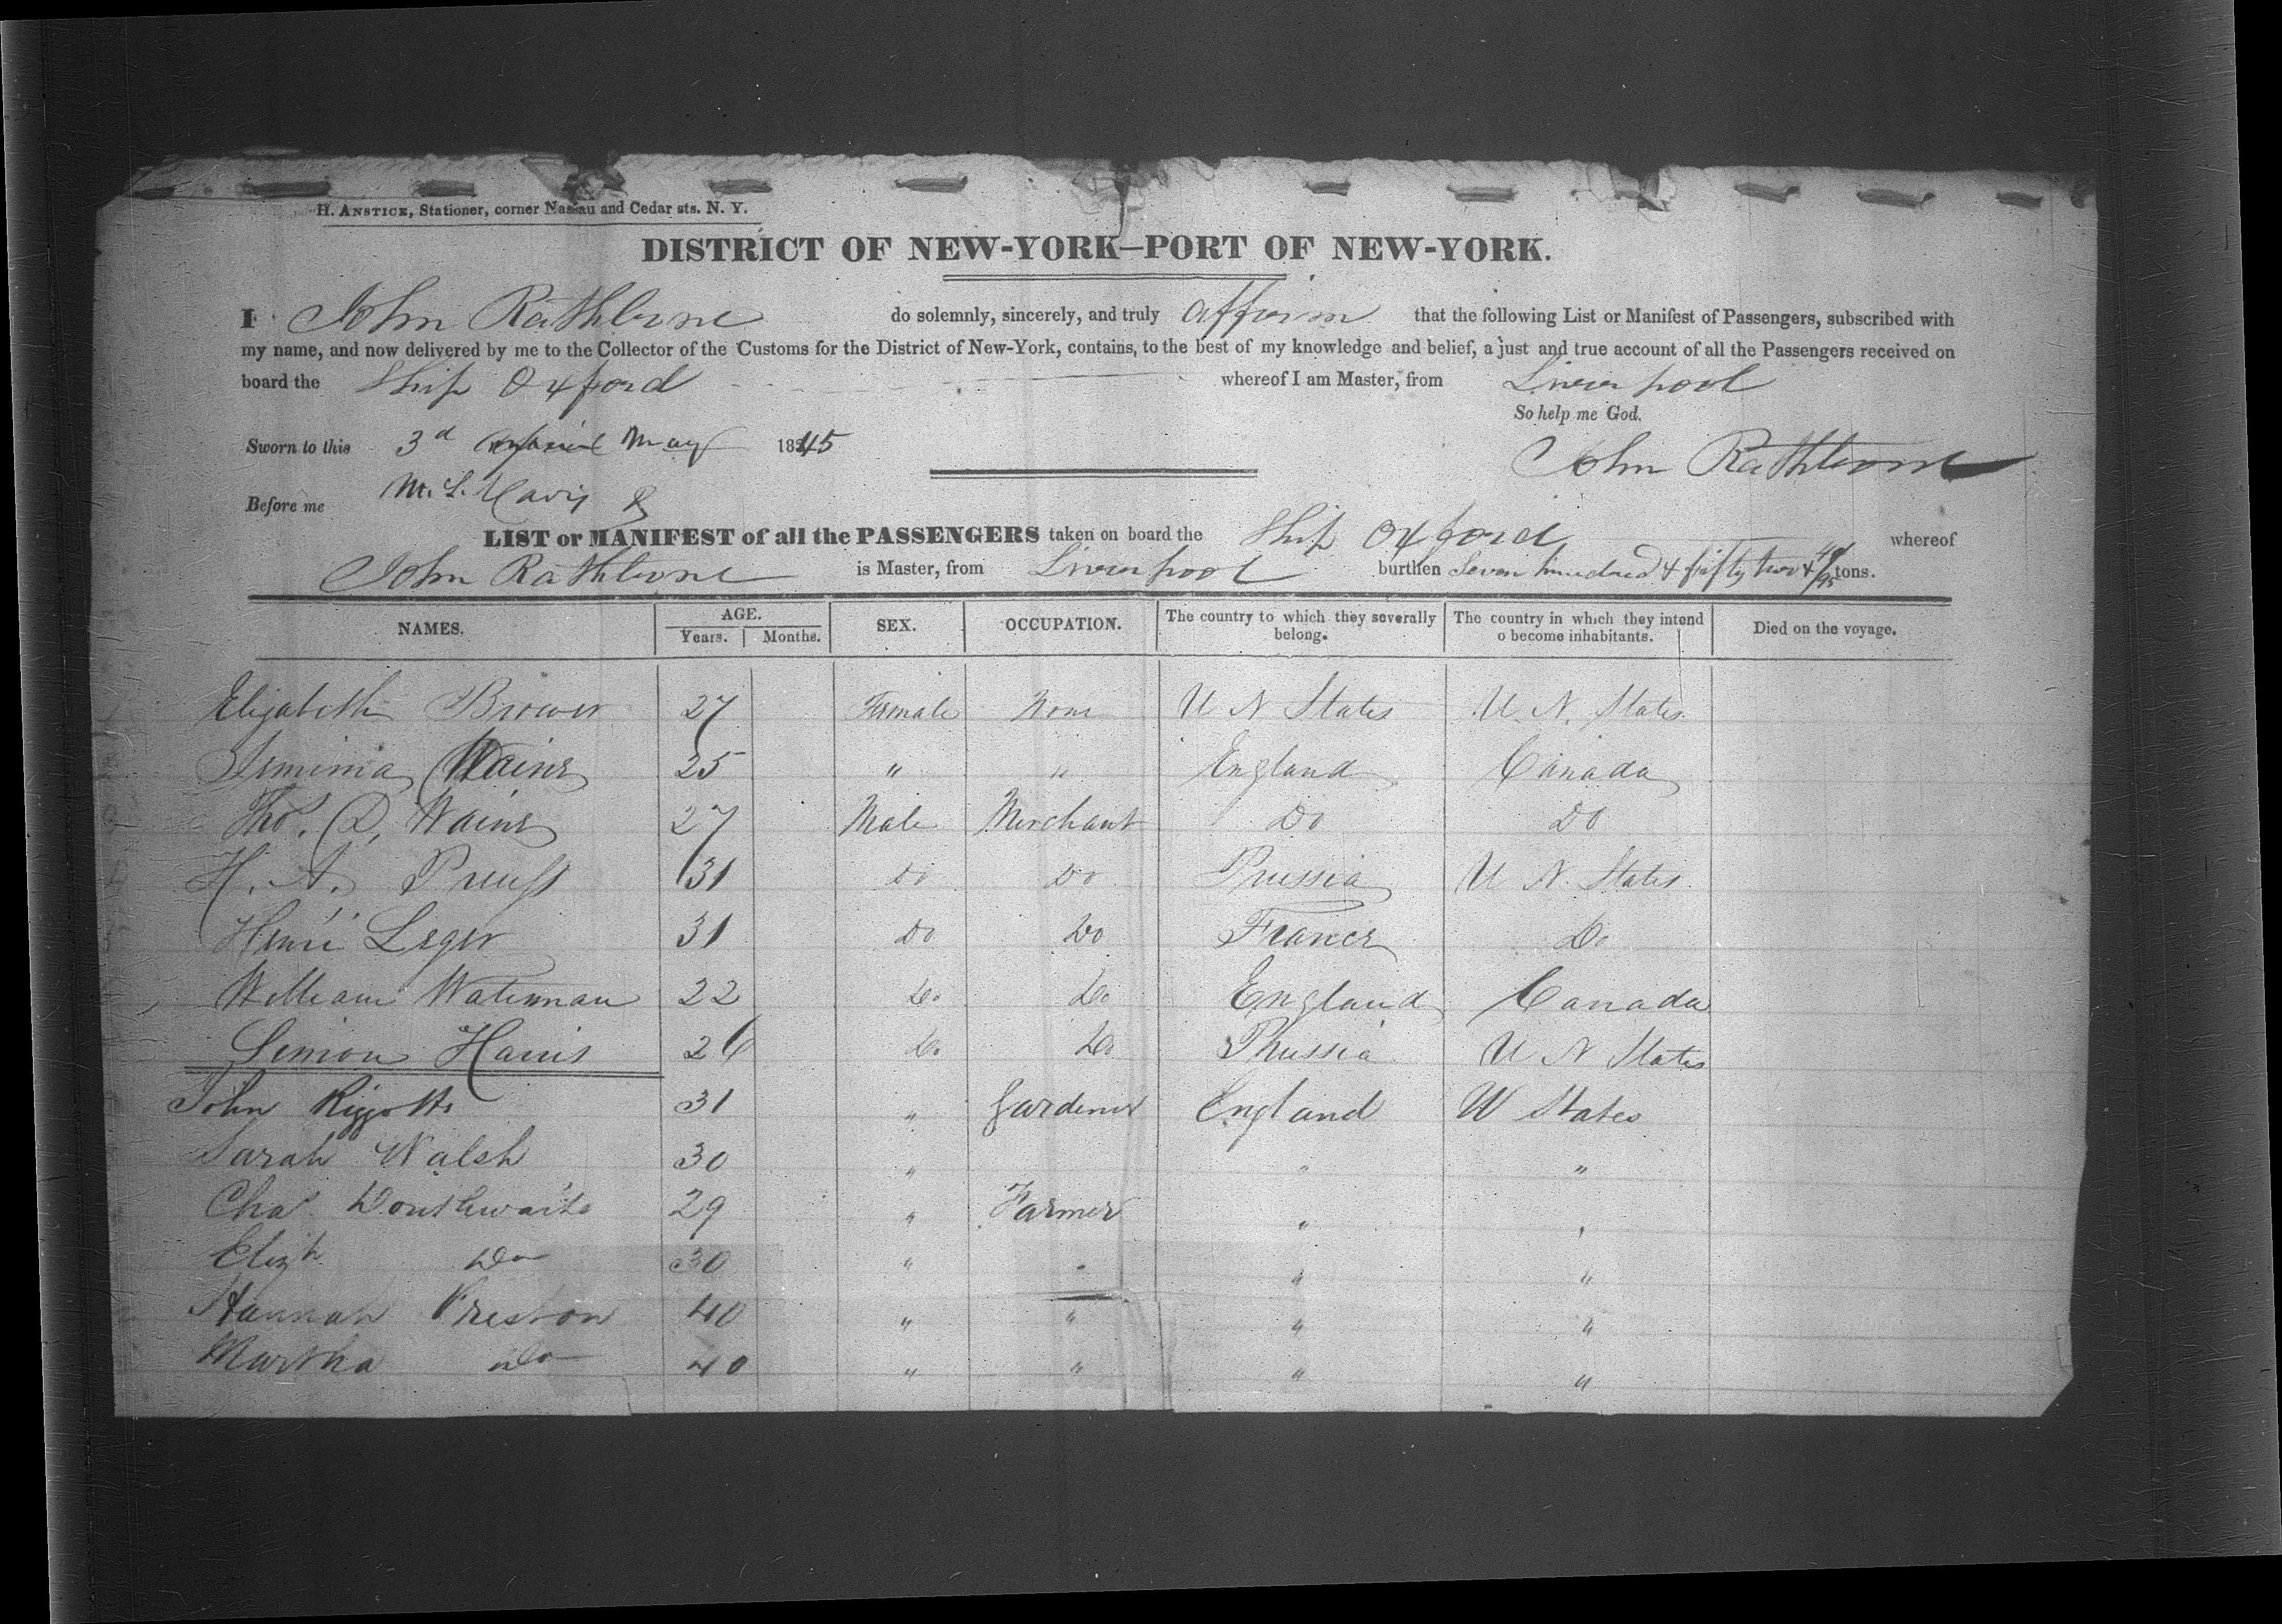 H. ANSTICE, Stationer, corner Nassau and Cedar sts. N. Y.
DISTRICT OF NEW-YORK—PORT OF NEW-YORK.
I John Rathbone do solemnly, sincerely, and truly affirm that the following List or Manifest of Passengers, subscribed with
my name, and now delivered by me to the Collector of the Customs for the District of New-York, contains, to the best of my knowledge and belief, a just and true account of all the Passengers received on
board the Ship Oxford whereof I am Master, from Liverpool
So help me God.
Sworn to this 3d May 1845
John Rathbone
Before me
LIST or MANIFEST of all the PASSENGERS taken on board the Ship Oxford whereof
John Rathbone is Master, from Liverpool burthen Seven hundred & fifty two & tons.
NAMES. AGE. Years. Months. SEX. OCCUPATION. The country to which they severally belong. The country in which they intend o become inhabitants. Died on the voyage.
Elizabeth Brower 27 Female None U N States U. N. States
Jemima Wains 25 " " England Canada
Thos. D. Wains 27 Male Merchant Do Do
H. A. Preuss 31 Do Do Prussia U N States
Henri Leger 31 Do Do France Do
William Waterman 22 Do Do England Canada
Simon Harris 26 Do Do Prussia U N States
John Riggotts 31 " Gardener England U States
Sarah Walsh 30 " " "
Chas. Douthwaite 29 " Farmer " "
Elizh. Do 30 " " " "
Hannah Preston 40 " " " "
Martha Do 40 " " " "